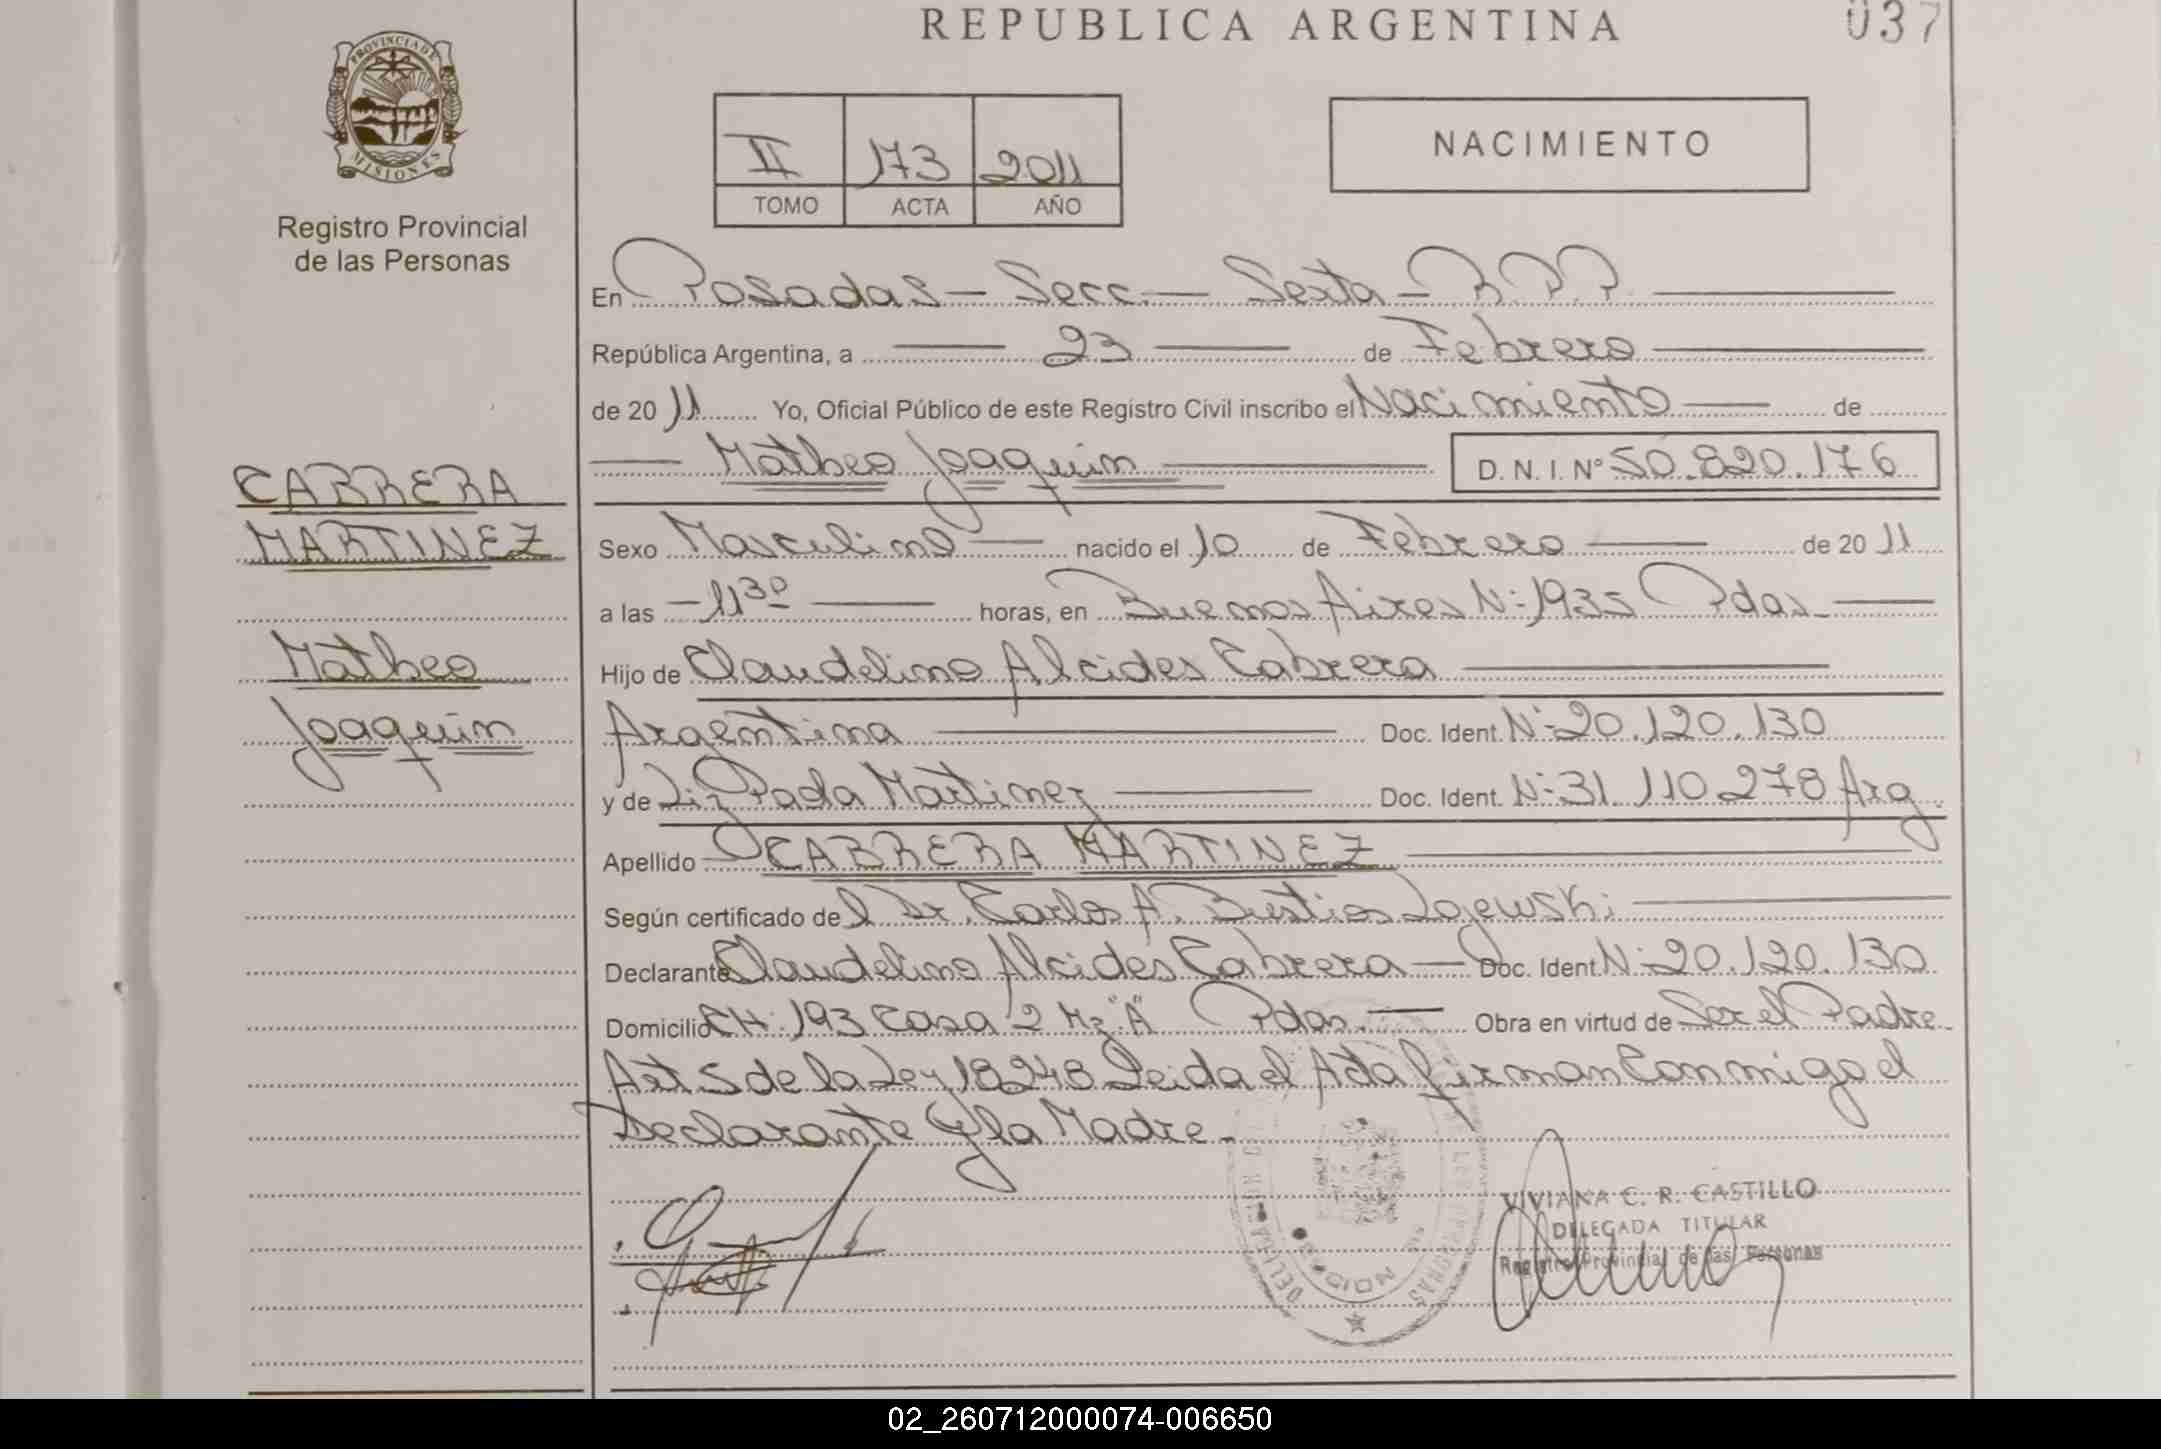 REPUBLICA ARGENTINA
037
PROVINCIA DE
MISIONES
Registro Provincial
de las Personas
II 173 2011
TOMO ACTA AÑO
NACIMIENTO
En Posadas - Secc. - Sexta - R.P.P.
República Argentina, a 23 de Febrero
de 2011 Yo, Oficial Público de este Registro Civil inscribo el Nacimiento de
Matheo Joaquín D. N. I. N° 50.820.176
CABRERA
MARTINEZ
Matheo
Joaquín
Sexo Masculino nacido el 10 de Febrero de 2011
a las 11 30 horas, en Buenos Aires N: 1935 Pdas
Hijo de Claudelino Alcides Cabrera
Argentina Doc. Ident. N: 20.120.130
y de Liz Paola Martinez Doc. Ident. N: 31.110.278 Arg.
Apellido CABRERA MARTINEZ
Según certificado del Dr. Carlos A. Bustios
Declarante Claudelino Alcides Cabrera Doc. Ident. N: 20.120.130
Domicilio CH: 193 Casa 2 Mz "A" Pdas. Obra en virtud de Ser el Padre
Art 5 de la Ley 18248 Leida el Acta firman Conmigo el
Declarante y la Madre.
VIVIANA C. R. CASTILLO
DELEGADA TITULAR
Registro Provincial de las Personas
02_260712000074-006650